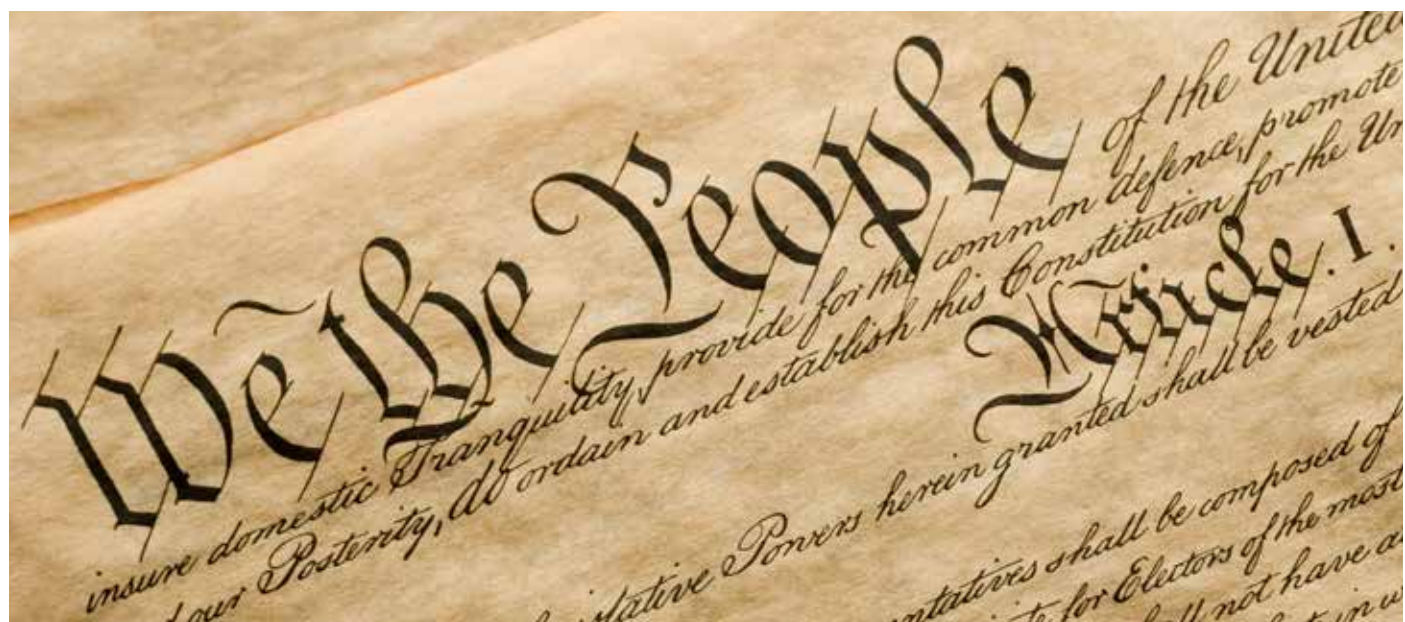 We the People of the United
insure domestic Tranquility, provide for the common defence, promote
our Posterity, do ordain and establish this Constitution for the Un
Article. I.
islative Powers herein granted shall be vested
ntatives shall be composed of
for Electors of the most
all not have a
in w